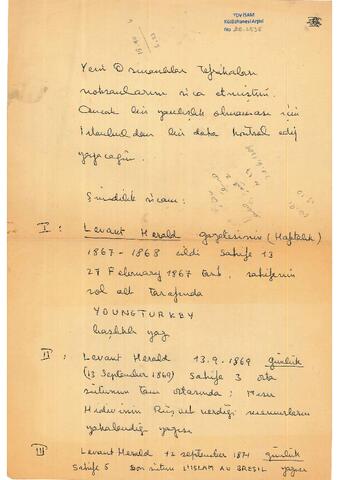 TDV İSAM
Kütüphanesi Arşivi
No 2E.1535
Yeni Osmanlılar Tefrikaları
noksanlarını rica etmiştim.
Ancak bir yanlışlık olmaması için
İstanbuldan bir daha kontrol edip
yazacağım.
Şimdilik ricam:
I : Levant Herald gazetesinin (Haftalık)
1867-1868 cildi Sahife 13
27 February 1867 tarih, sahifenin
sol alt tarafında
YOUNG TURKEY
başlıklı yazı
II : Levant Herald 13.9.1869 günlük
(13 September 1869) Sahife 3 orta
sütunun tam ortasında: Mısır
Hidivinin Rüşvet verdiği memurların
yakalandığı yazısı
III : Levant Herald 12 september 1871 günlük
Sahife 5 Son sütun L'ISLAM AU BRESIL yazısı